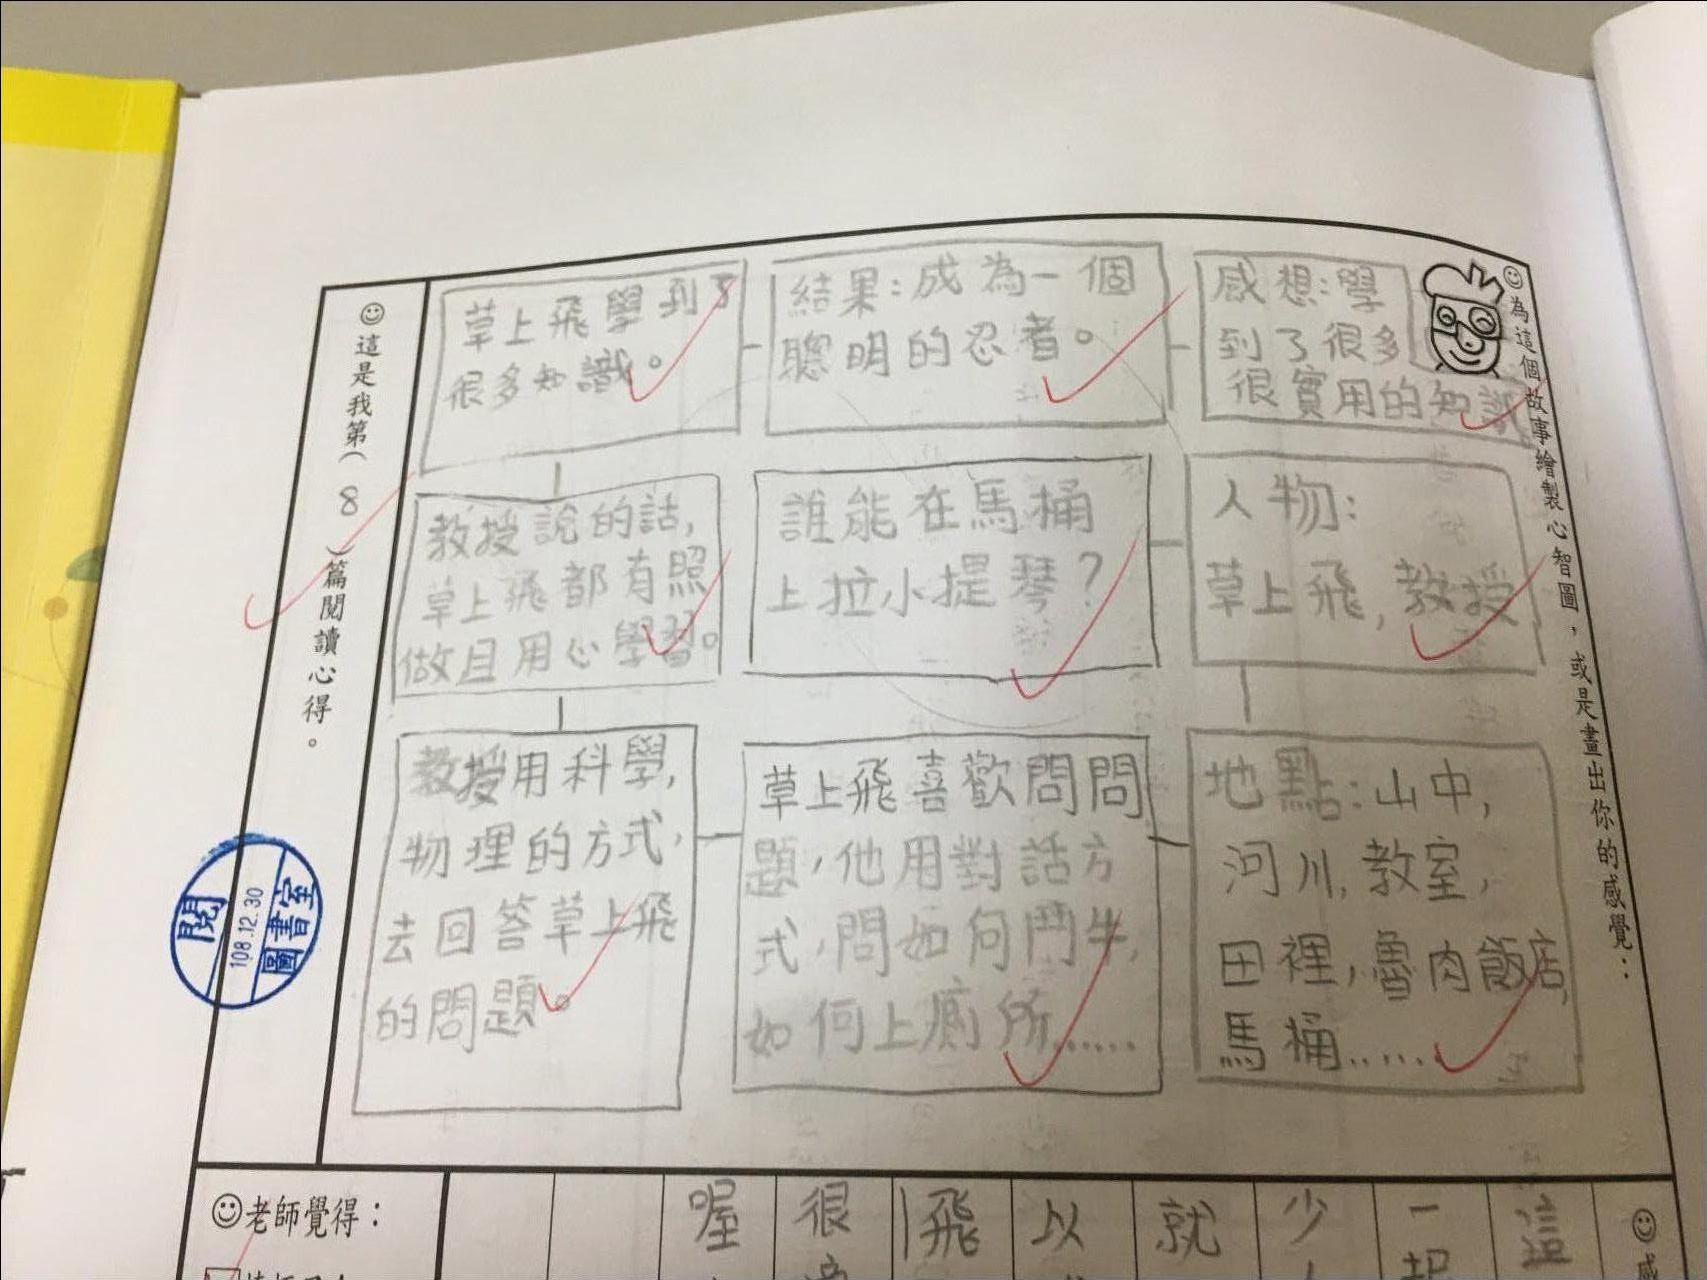 為這個故事繪製心智圖，或是畫出你的感覺：
感想：學
到了很多
很實用的知識
結果：成為一個
聰明的忍者。
草上飛學到了
很多知識。
人物：
草上飛，教授
誰能在馬桶
上拉小提琴？
教授說的話，
草上飛都有照
做且用心學習。
地點：山中，
河川，教室，
田裡，魯肉飯店，
馬桶……
草上飛喜歡問問
題，他用對話方
式，問如何鬥牛，
如何上廁所……
教授用科學，
物理的方式，
去回答草上飛
的問題。
這是我第（ 8 ）篇閱讀心得。
閱
108.12.30
圖書室
這
一起
少
就
以
飛
很
喔
老師覺得：